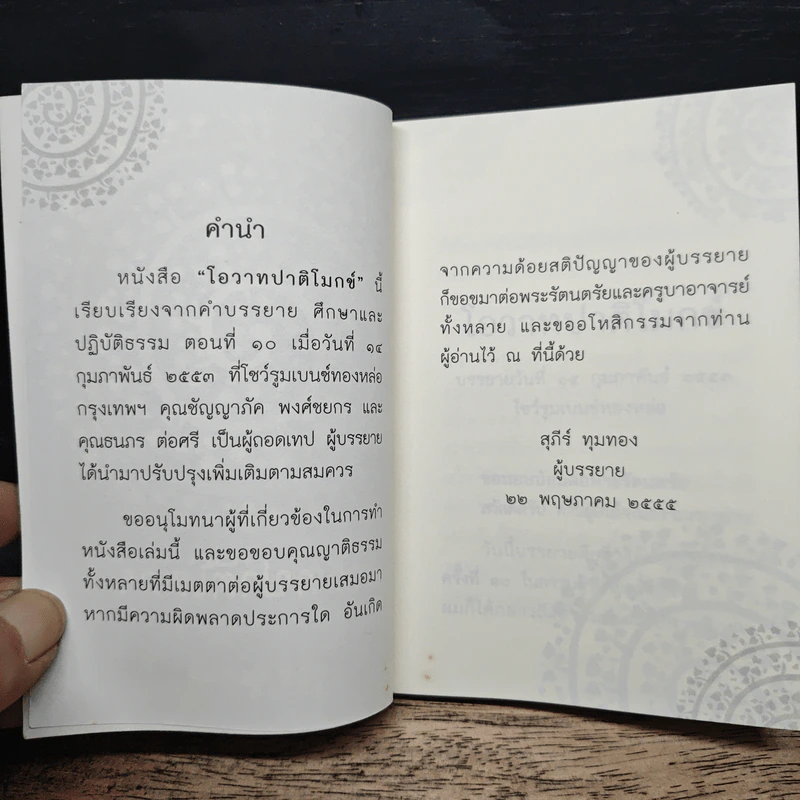 คำนำ
หนังสือ “โอวาทปาติโมกข์” นี้
เรียบเรียงจากคำบรรยาย ศึกษาและ
ปฏิบัติธรรม ตอนที่ ๑๐ เมื่อวันที่ ๑๔
กุมภาพันธ์ ๒๕๕๓ ที่โชว์รูมเบนซ์ทองหล่อ
กรุงเทพฯ คุณชัญญาภัค พงศ์ชยกร และ
คุณธนภร ต่อศรี เป็นผู้ถอดเทป ผู้บรรยาย
ได้นำมาปรับปรุงเพิ่มเติมตามสมควร
ขออนุโมทนาผู้ที่เกี่ยวข้องในการทำ
หนังสือเล่มนี้ และขอขอบคุณญาติธรรม
ทั้งหลายที่มีเมตตาต่อผู้บรรยายเสมอมา
หากมีความผิดพลาดประการใด อันเกิด
จากความด้อยสติปัญญาของผู้บรรยาย
ก็ขอขมาต่อพระรัตนตรัยและครูบาอาจารย์
ทั้งหลาย และขออโหสิกรรมจากท่าน
ผู้อ่านไว้ ณ ที่นี้ด้วย
สุภีร์ ทุมทอง
ผู้บรรยาย
๒๒ พฤษภาคม ๒๕๕๕